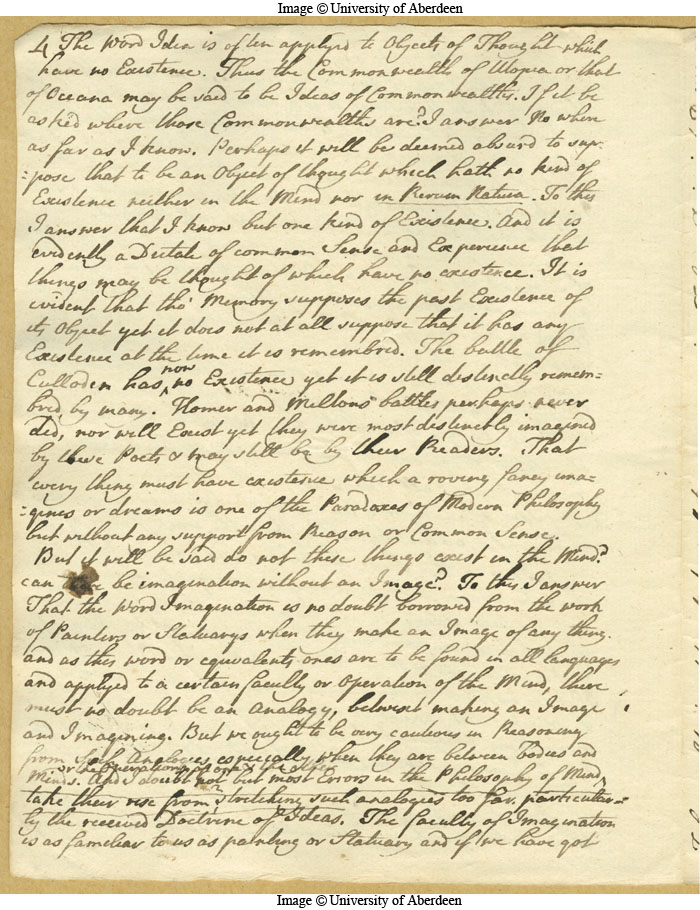 Image © University of Aberdeen
4 The Word Idea is often applyed to Objects of Thought which
have no Existence. Thus the Commonwealth of Utopia or that
of Oceana may be said to be Ideas of Commonwealths. If it be
asked where those Commonwealths are? I answer No where
as far as I know. Perhaps it will be deemed absurd to sup-
=pose that to be an Object of thought which hath no kind of
Existence neither in the Mind nor in Rerum Natura. To this
I answer that I know but one kind of Existence. And it is
evidently a Dictate of common Sense and Experience that
things may be thought of which have no existence. It is
evident that tho' Memory supposes the past Existence of
its Object yet it does not at all suppose that it has any
Existence at the time it is remembred. The battle of
Culloden has now no Existence yet it is still distinctly remem=
bred by many. Homer and Miltons battles perhaps never
did, nor will Exist yet they were most distinctly imagined
by these Poets & may still be by their Readers. That
every thing must have existence which a roving fancy ima-
=gines or dreams is one of the Paradoxes of Modern Philosophy
but without any support from Reason or Common Sense.
But it will be said do not these things exist in the Mind?
can be imagination without an Image? To this I answer
That the word Imagination is no doubt borrowed from the work
of Painters or Statuarys when they make an Image of any thing.
and as this word or equivalent ones are to be found in all languages
and applyed to a certain faculty or Operation of the Mind, there
must no doubt be an Analogy, betwixt making an Image
and Imagining. But we ought to be very cautious in Reasoning
from such Analogies especially when they are between Bodies and
or the Operations of one & the other
Minds. And I doubt not but most Errors in the Philosophy of Mind
take their rise from stretching such analogies too far. particular=
ly the received Doctrine of Ideas. The faculty of Imagination
is as familiar to us as painting or Statuary and if we have got
Image © University of Aberdeen